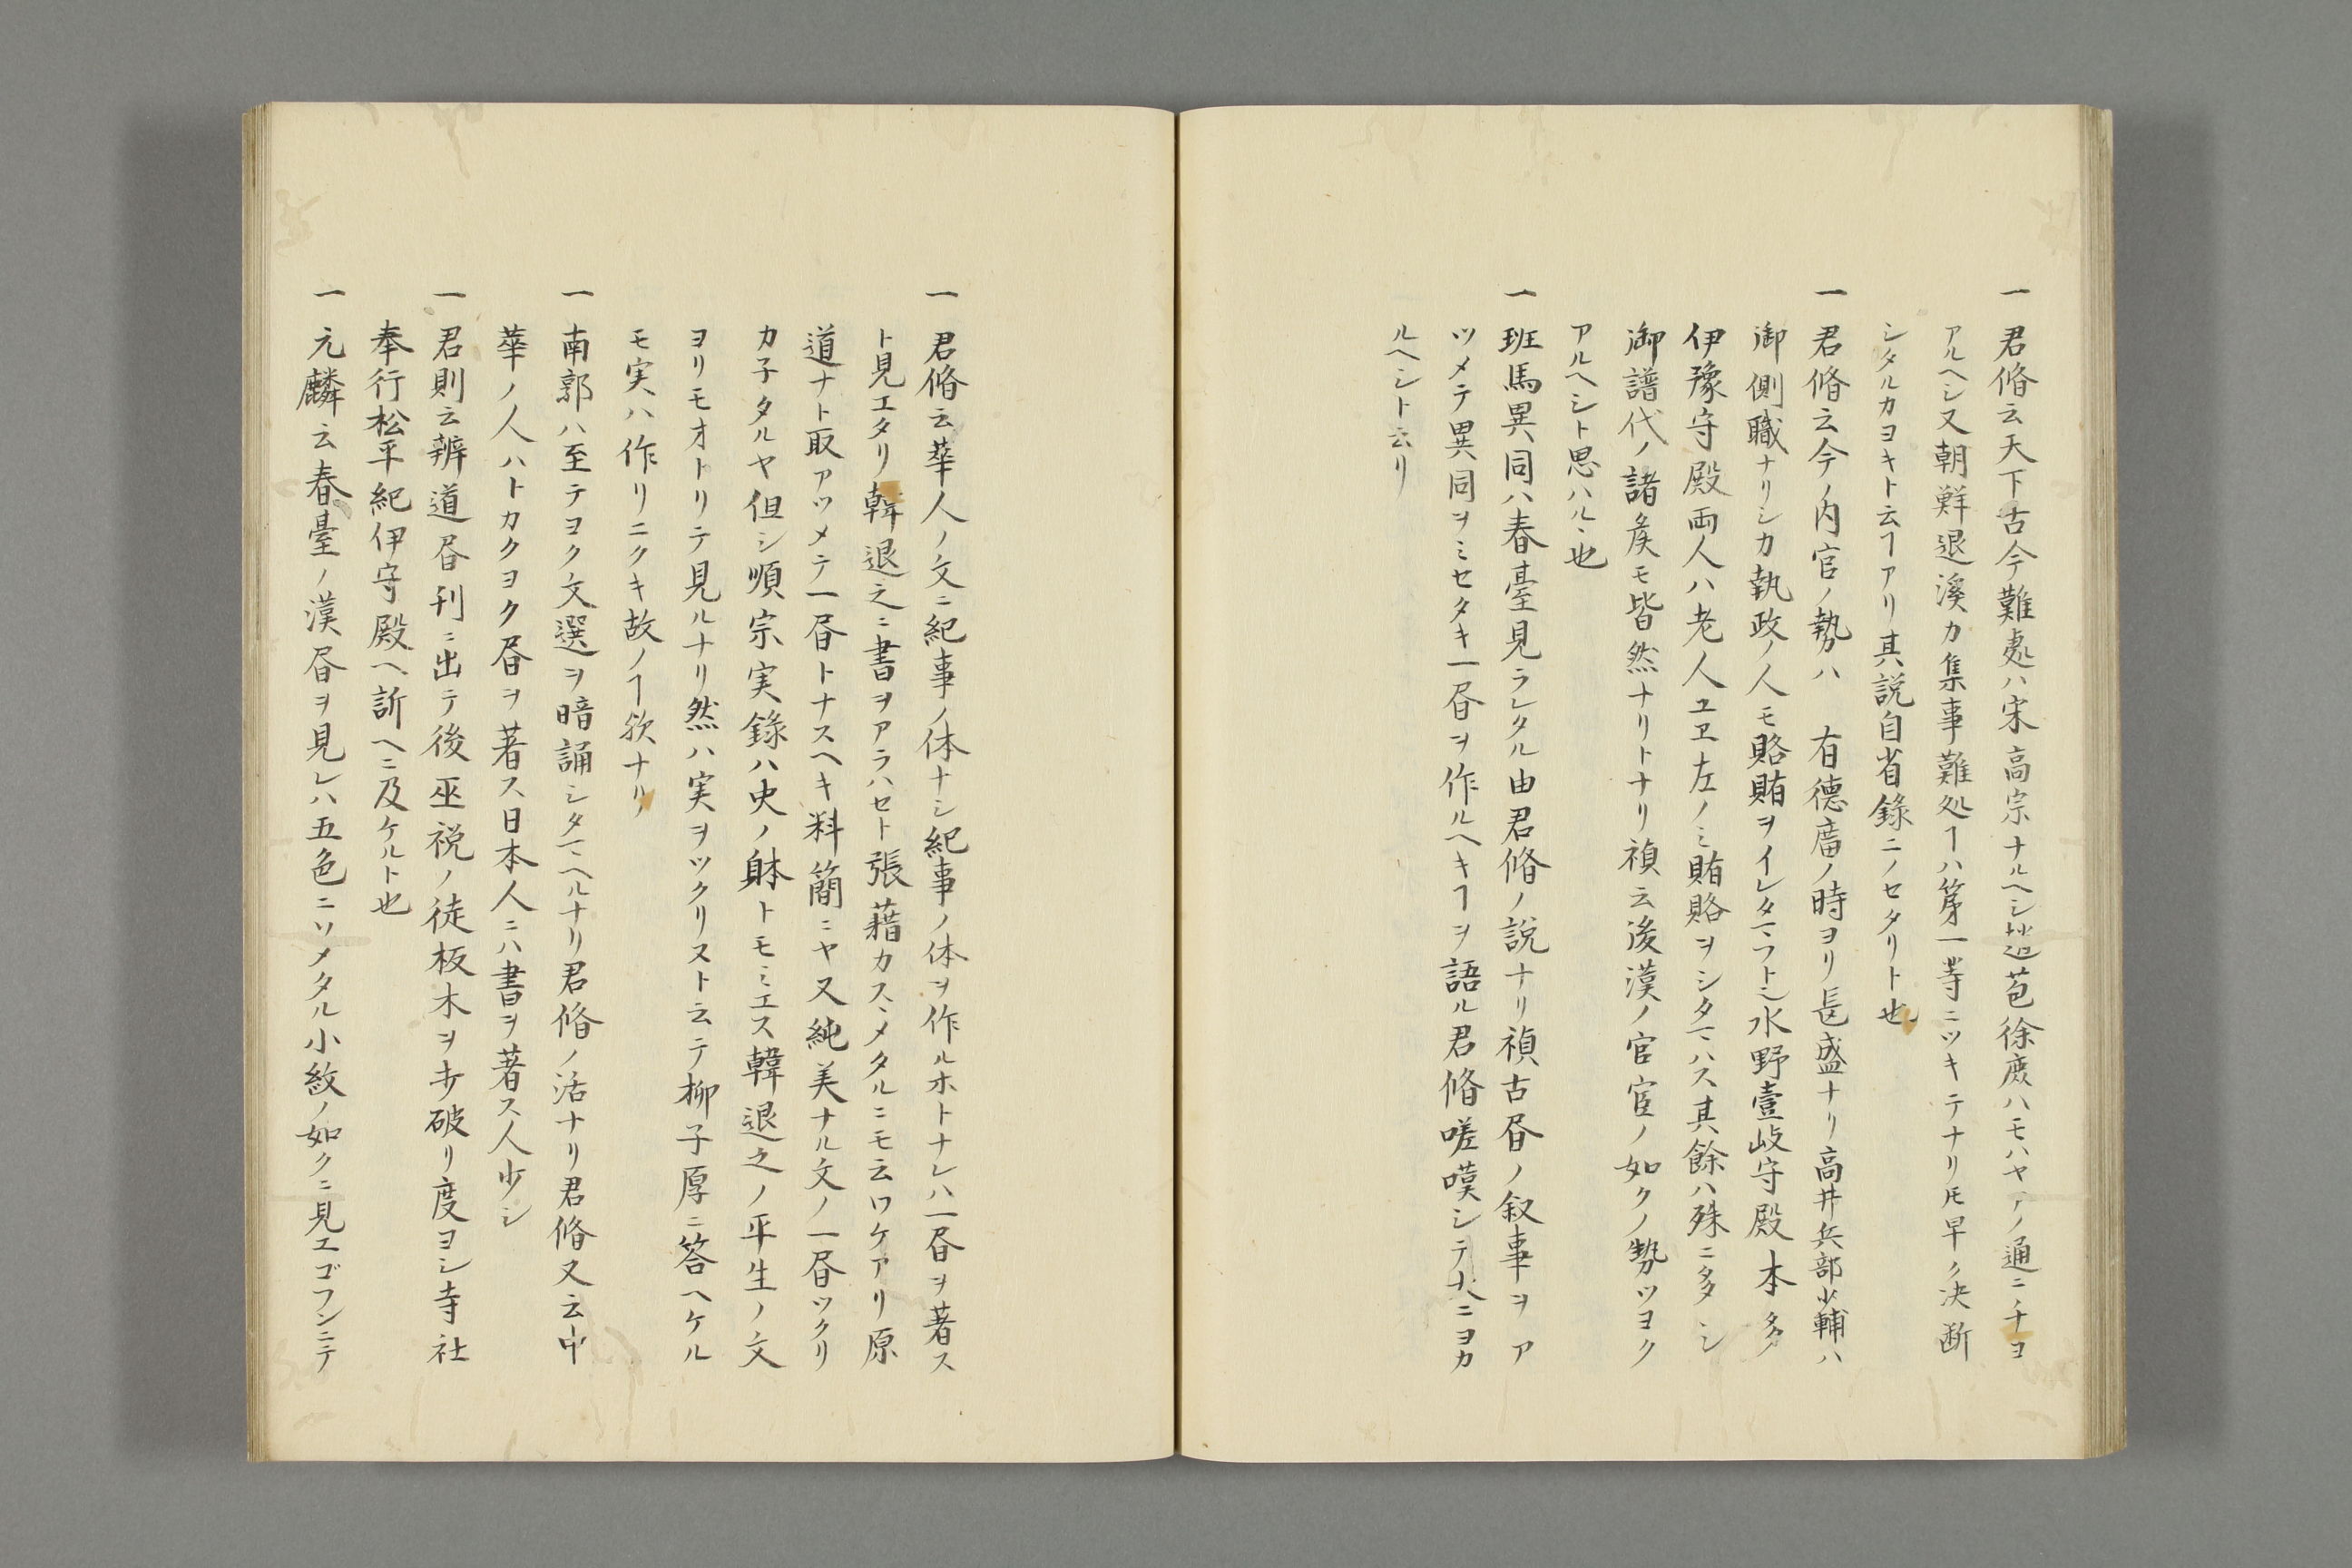 一 君脩云天下古今難處ハ宋高宗ナルヘシ 苞徐庶ハモハヤアノ通ニテヨ
アルヘシ又朝鮮退溪カ集事難処ヿハ第一等ニツキテナリ𪜈早ク決断
シタルカヨキト云ヿアリ其説自省錄ニノセタリト也
一 君脩云今ノ内官ノ勢ハ 有德庿ノ時ヨリ長盛ナリ高井兵部少輔ハ
御側職ナリシカ執政ノ人モ賂賄ヲイレタマフト也水野壹岐守殿本多
伊豫守殿両人ハ老人ユヱ左ノミ賄賂ヲシタマハス其餘ハ殊ニ多シ
御譜代ノ諸矦モ皆然ナリトナリ禎云後漢ノ官宦ノ如クノ勢ツヨク
アルヘシト思ハルヽ也
一 班馬異同ハ春臺見ラレタル由君脩ノ説ナリ禎古昏ノ叙事ヲア
ツメテ異同ヲミセタキ一昏ヲ作ルヘキヿヲ語ル君脩嗟嘆シテ大ニヨカ
ルヘシト云リ
一 君脩云華人ノ文ニ紀事ノ体ナシ紀事ノ体ヲ作ルホトナレハ一昏ヲ著ス
ト見エタリ韓退之ニ書ヲアラハセト張藉カスヽメタルニモ云ワケアリ原
道ナト取アツメテ一昏トナスヘキ料簡ニヤ又純美ナル文ノ一昏ツクリ
カ子タルヤ但シ順宗実錄ハ史ノ躰トモミエス韓退之ノ平生ノ文
ヨリモオトリテ見ルナリ然ハ実ヲツクリスト云テ柳子厚ニ答ヘケル
モ実ハ作リニクキ故ノヿ欤ナリ
一 南郭ハ至テヨク文選ヲ暗誦シタマヘルナリ君脩ノ活ナリ君脩又云中
華ノ人ハトカクヨク昏ヲ著ス日本人ニハ書ヲ著ス人少シ
一 君則云辨道昏刊ニ出テ後巫祝ノ徒板木ヲ打破リ度ヨシ寺社
奉行松平紀伊守殿ヘ訴ヘニ及ケルト也
一 元麟云春臺ノ漢昏ヲ見レハ五色ニソメタル小紋ノ如クニ見エゴフンニテ